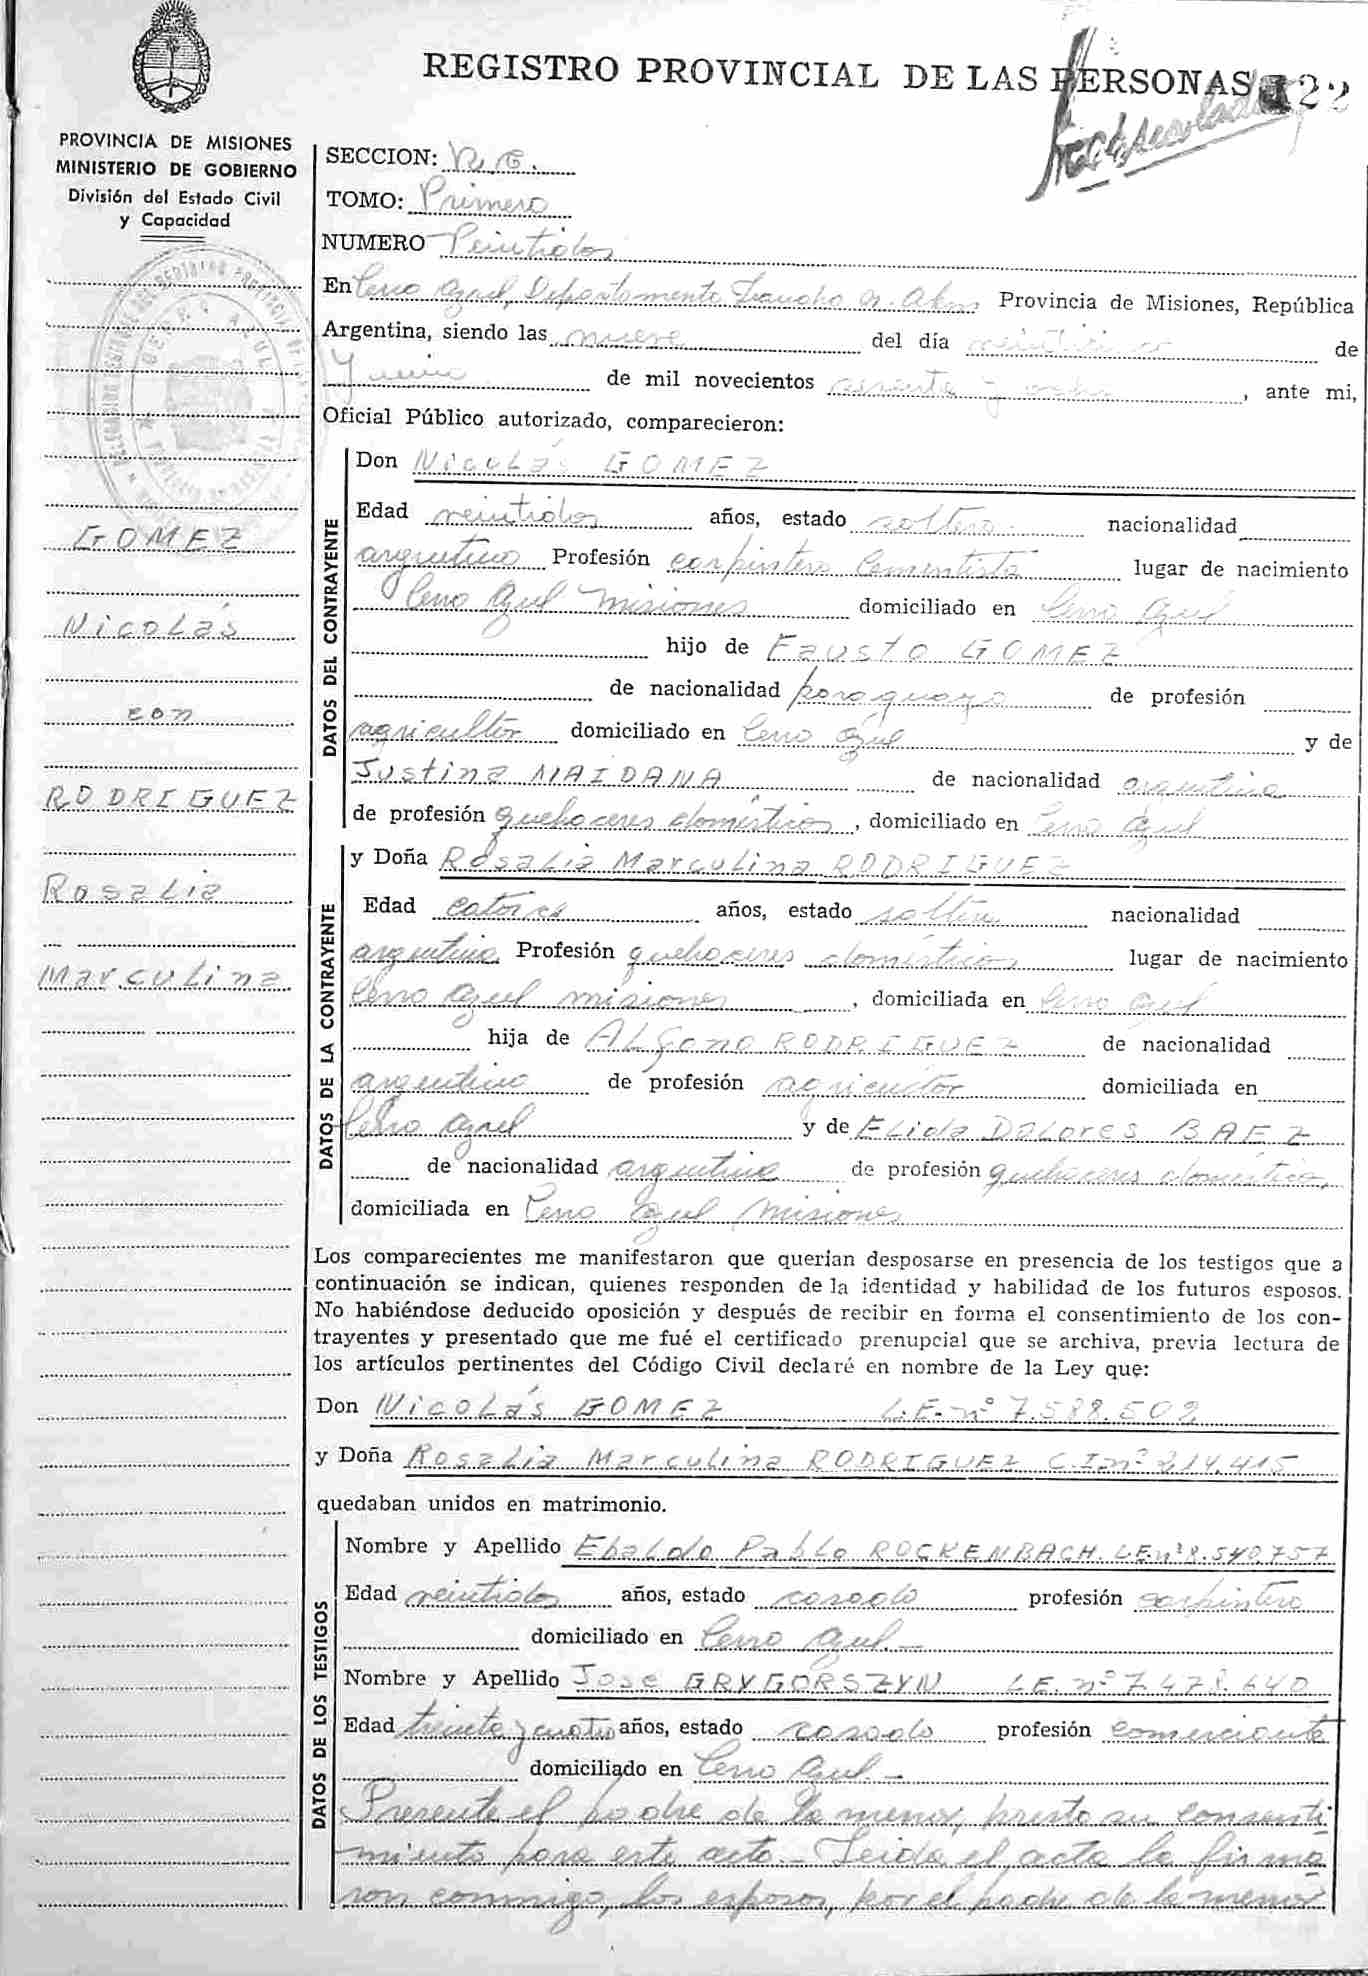 REGISTRO PROVINCIAL DE LAS PERSONAS 22
PROVINCIA DE MISIONES
MINISTERIO DE GOBIERNO
División del Estado Civil
y Capacidad
CERRO AZUL
GOMEZ
Nicolás
con
RODRIGUEZ
Rosalia
Marculina
SECCION:
TOMO: Primero
NUMERO Veintidos
En Cerro Azul, Departamento Leandro N. Alem Provincia de Misiones, República
Argentina, siendo las nueve del día veinticinco de
Junio de mil novecientos sesenta y ocho, ante mi,
Oficial Público autorizado, comparecieron:
DATOS DEL CONTRAYENTE
Don Nicolás GOMEZ
Edad veintidos años, estado soltero nacionalidad
argentino Profesión carpintero Cementista lugar de nacimiento
Cerro Azul Misiones domiciliado en Cerro Azul
hijo de Fausto GOMEZ
de nacionalidad paraguayo de profesión
agricultor domiciliado en Cerro Azul y de
Justina MAIDANA de nacionalidad argentina
de profesión quehaceres domésticos, domiciliado en Cerro Azul
DATOS DE LA CONTRAYENTE
y Doña Rosalia Marculina RODRIGUEZ
Edad catorce años, estado soltera nacionalidad
argentina Profesión quehaceres domésticos lugar de nacimiento
Cerro Azul misiones, domiciliada en Cerro Azul
hija de RODRIGUEZ de nacionalidad
argentino de profesión agricultor domiciliada en
Cerro Azul y de Elida Dolores BAEZ
de nacionalidad argentina de profesión quehaceres domésticos,
domiciliada en Cerro Azul Misiones
Los comparecientes me manifestaron que querian desposarse en presencia de los testigos que a
continuación se indican, quienes responden de la identidad y habilidad de los futuros esposos.
No habiéndose deducido oposición y después de recibir en forma el consentimiento de los con-
trayentes y presentado que me fué el certificado prenupcial que se archiva, previa lectura de
los artículos pertinentes del Código Civil declaré en nombre de la Ley que:
Don Nicolás GOMEZ L.E. nº 7.588.502
y Doña Rosalia Marculina RODRIGUEZ C.I nº 214.415
quedaban unidos en matrimonio.
DATOS DE LOS TESTIGOS
Nombre y Apellido Ebaldo Pablo ROCKENBACH. L.E. nº 8.540.757
Edad veintidos años, estado casado profesión carpintero
domiciliado en Cerro Azul.-
Nombre y Apellido Jose GRYGORSZYN L.E. nº 7.478.640
Edad treinta y cuatro años, estado casado profesión comerciante
domiciliado en Cerro Azul.-
Presente el padre de la menor, presta su consenti-
miento para este acto.- Leida el acta la firma-
ron conmigo, los esposos, por el padre de la menor